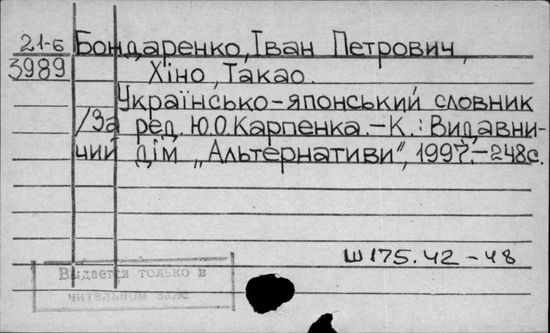 21-Б Бондаренко, Іван Петрович,
3989 Хіно, Такао.
Українсько-японський словник
/За ред. Ю.О.Карпенка.-К.: Видавни-
чий дім „Альтернативи", 1997.-248с.
Ш175.42-48
Выдается только в
читальном зале